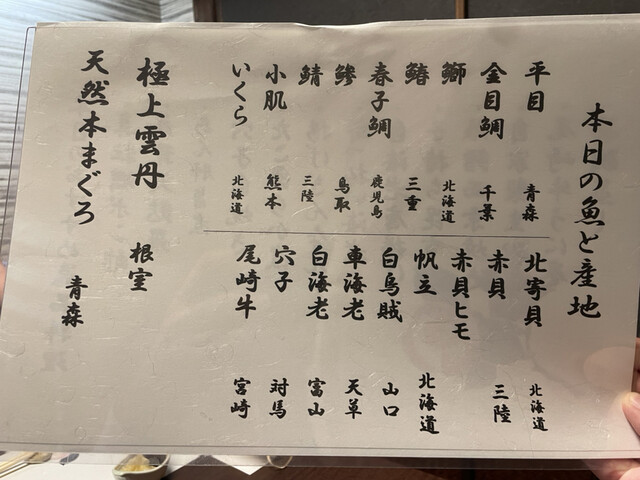 本日の魚と産地
平目 青森
金目鯛 千葉
鰤 北海道
鰆 三重
春子鯛 鹿児島
鯵 鳥取
鯖 三陸
小肌 熊本
いくら 北海道
北寄貝 北海道
赤貝 三陸
赤貝ヒモ
帆立 北海道
白烏賊 山口
車海老 天草
白海老 富山
穴子 対馬
尾崎牛 宮崎
極上雲丹 根室
天然本まぐろ 青森